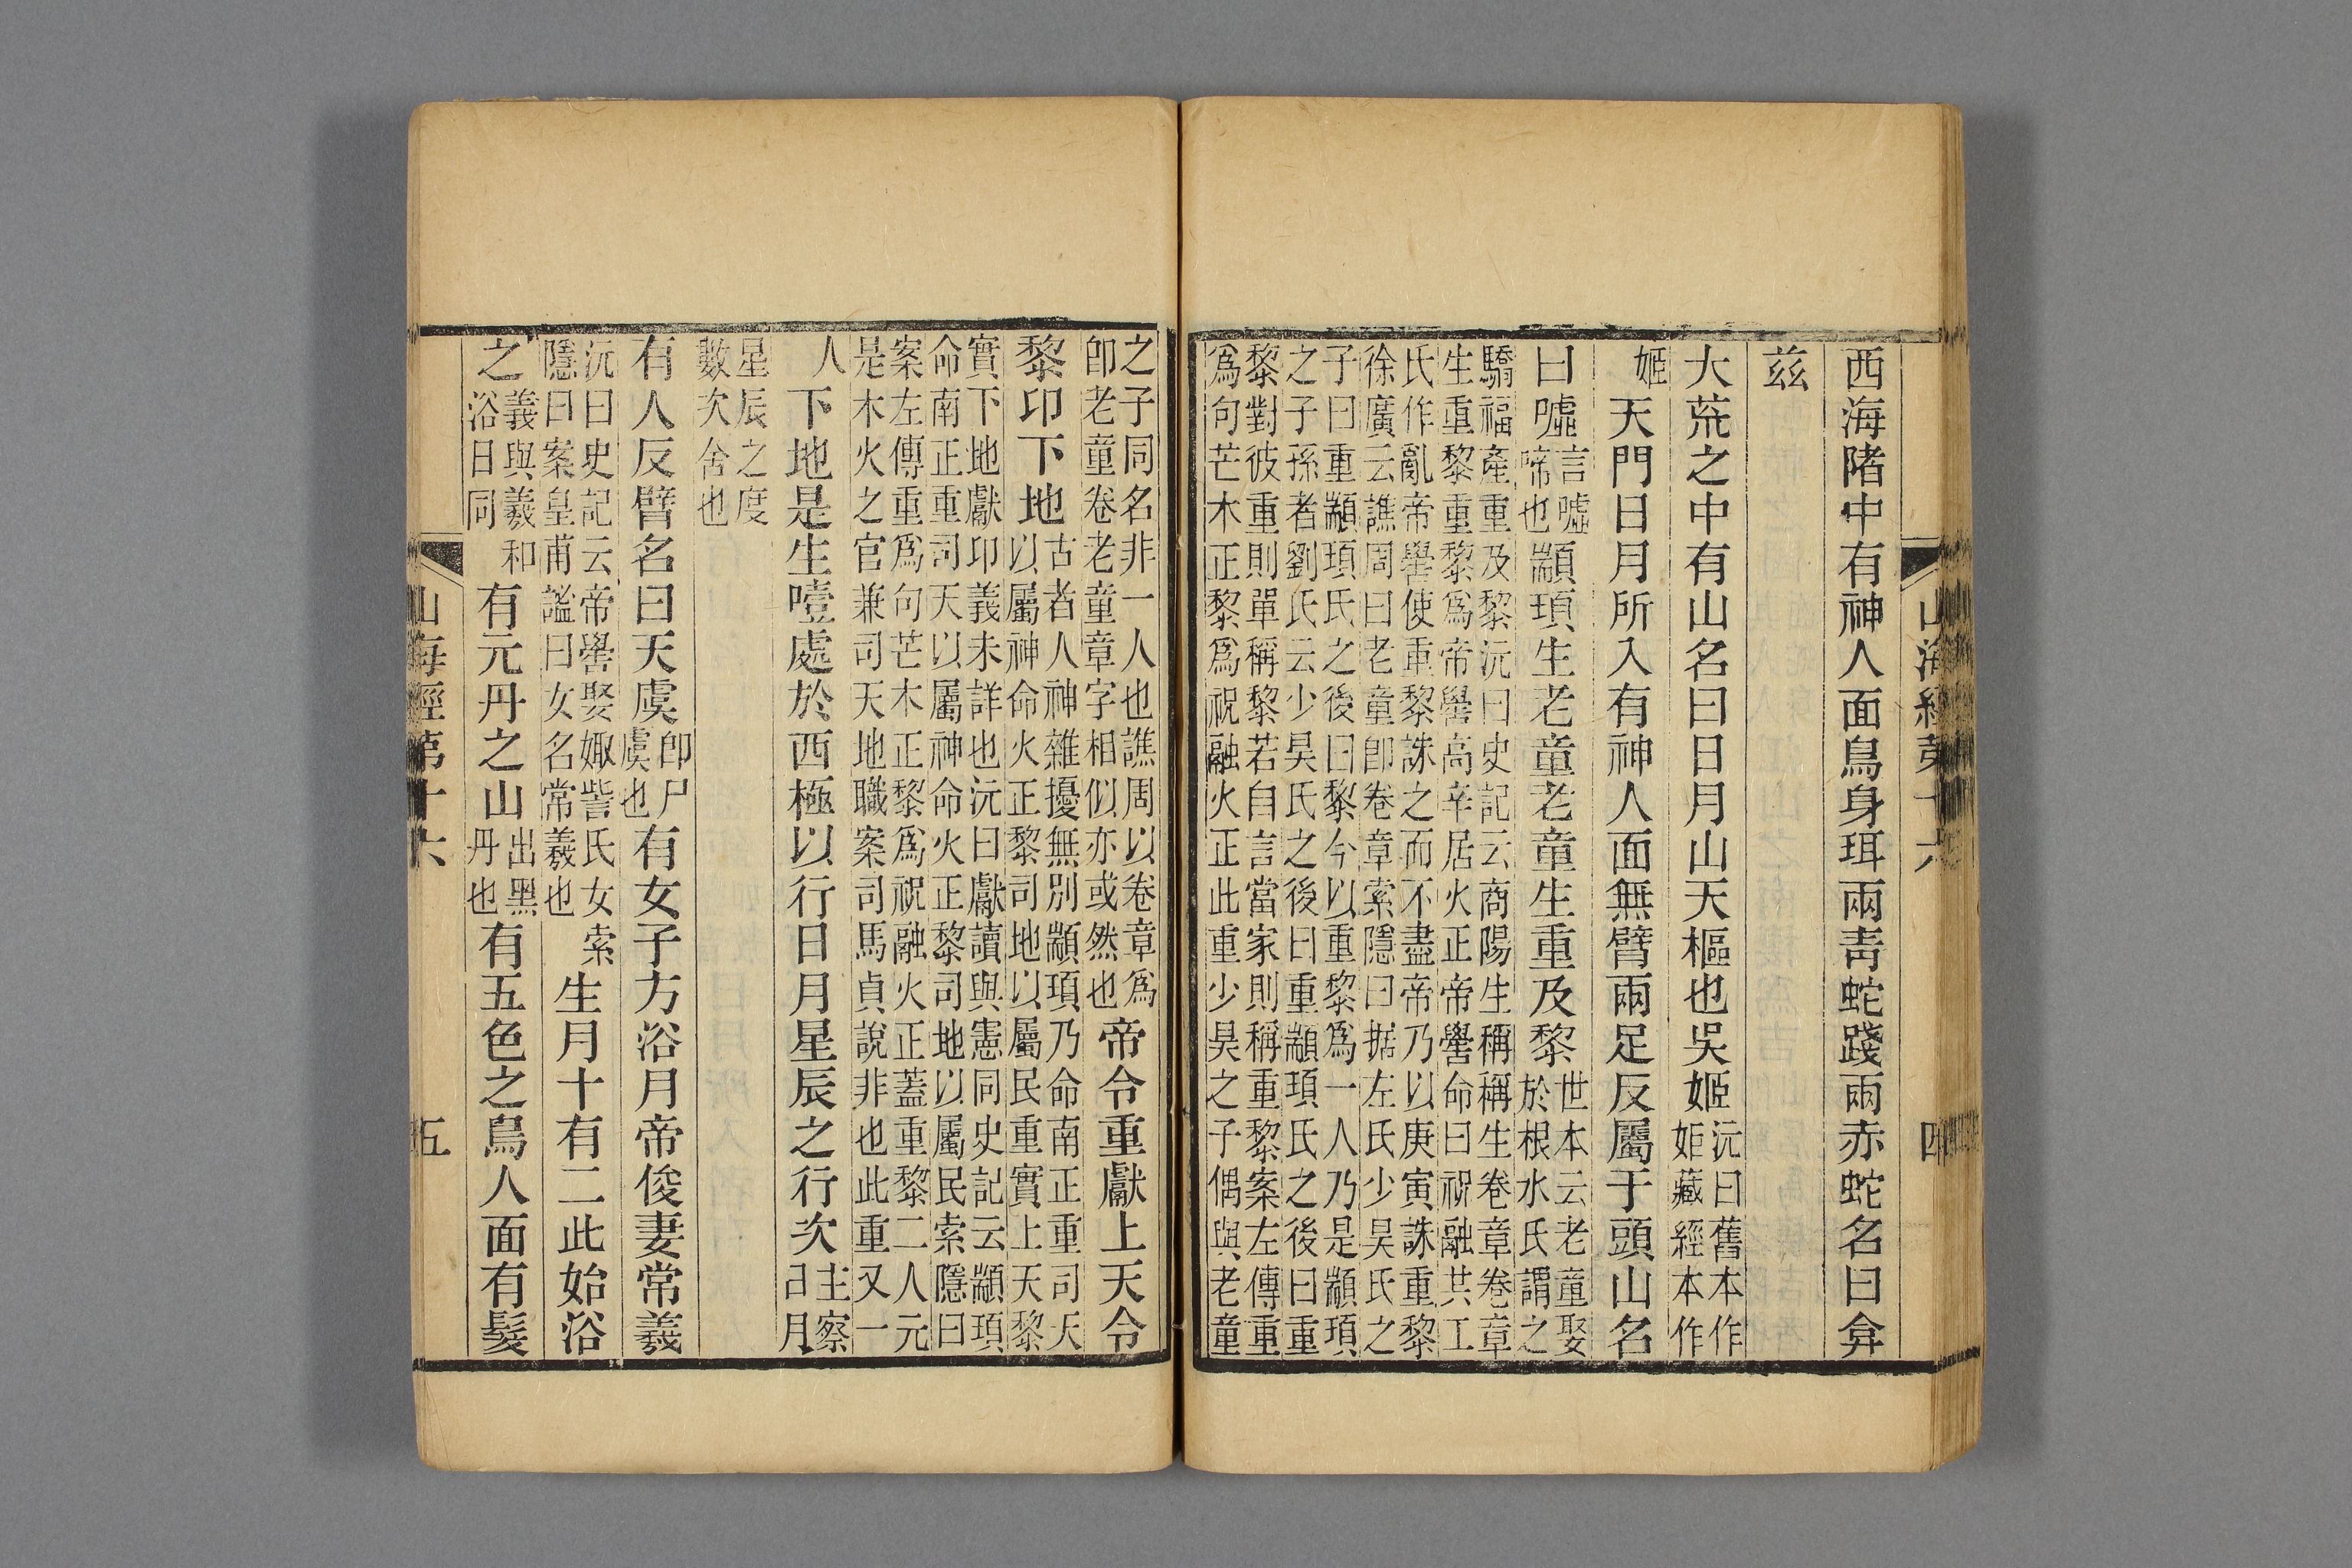 山海經第十六 四
西海陼中有神人面鳥身珥兩靑蛇踐兩赤蛇名曰弇
兹
大荒之中有山名曰日月山天樞也吳姬
沅曰舊本作
姖藏經本作
姬
天門日月所入有神人面無臂兩足反屬于頭山名
曰噓
言噓
啼也
顓頊生老童老童生重及黎
世本云老童娶
於根水氏謂之
驕福產重及黎沅曰史記云商陽生稱稱生卷章卷章
生重黎重黎爲帝嚳高辛居火正帝嚳命曰祝融共工
氏作亂帝嚳使重黎誅之而不盡帝乃以庚寅誅重黎
徐廣云譙周曰老童卽卷章索隱曰据左氏少昊氏之
子曰重顓頊氏之後曰黎今以重黎爲一人乃是顓頊
之子孫者劉氏云少昊氏之後曰重顓頊氏之後曰重
黎對彼重則單稱黎若自言當家則稱重黎案左傳重
爲句芒木正黎爲祝融火正此重少昊之子偶與老童
之子同名非一人也譙周以卷章爲
卽老童卷老童章字相似亦或然也
帝令重獻上天令
黎卬下地
古者人神雜擾無別顓頊乃命南正重司天
以屬神命火正黎司地以屬民重實上天黎
實下地獻卬義未詳也沅曰獻讀與憲同史記云顓頊
命南正重司天以屬神命火正黎司地以屬民索隱曰
案左傳重爲句芒木正黎爲祝融火正蓋重黎二人元
是木火之官兼司天地職案司馬貞說非也此重又一
人
下地是生噎處於西極以行日月星辰之行次
主察
日月
星辰之度
數次舍也
有人反臂名曰天虞
卽尸
虞也
有女子方浴月帝俊妻常羲
沅曰史記云帝嚳娶娵訾氏女索
隱曰案皇甫謐曰女名常羲也
生月十有二此始浴
之
義與羲和
浴日同
有元丹之山
出黑
丹也
有五色之鳥人面有髮
山海經第十六 五